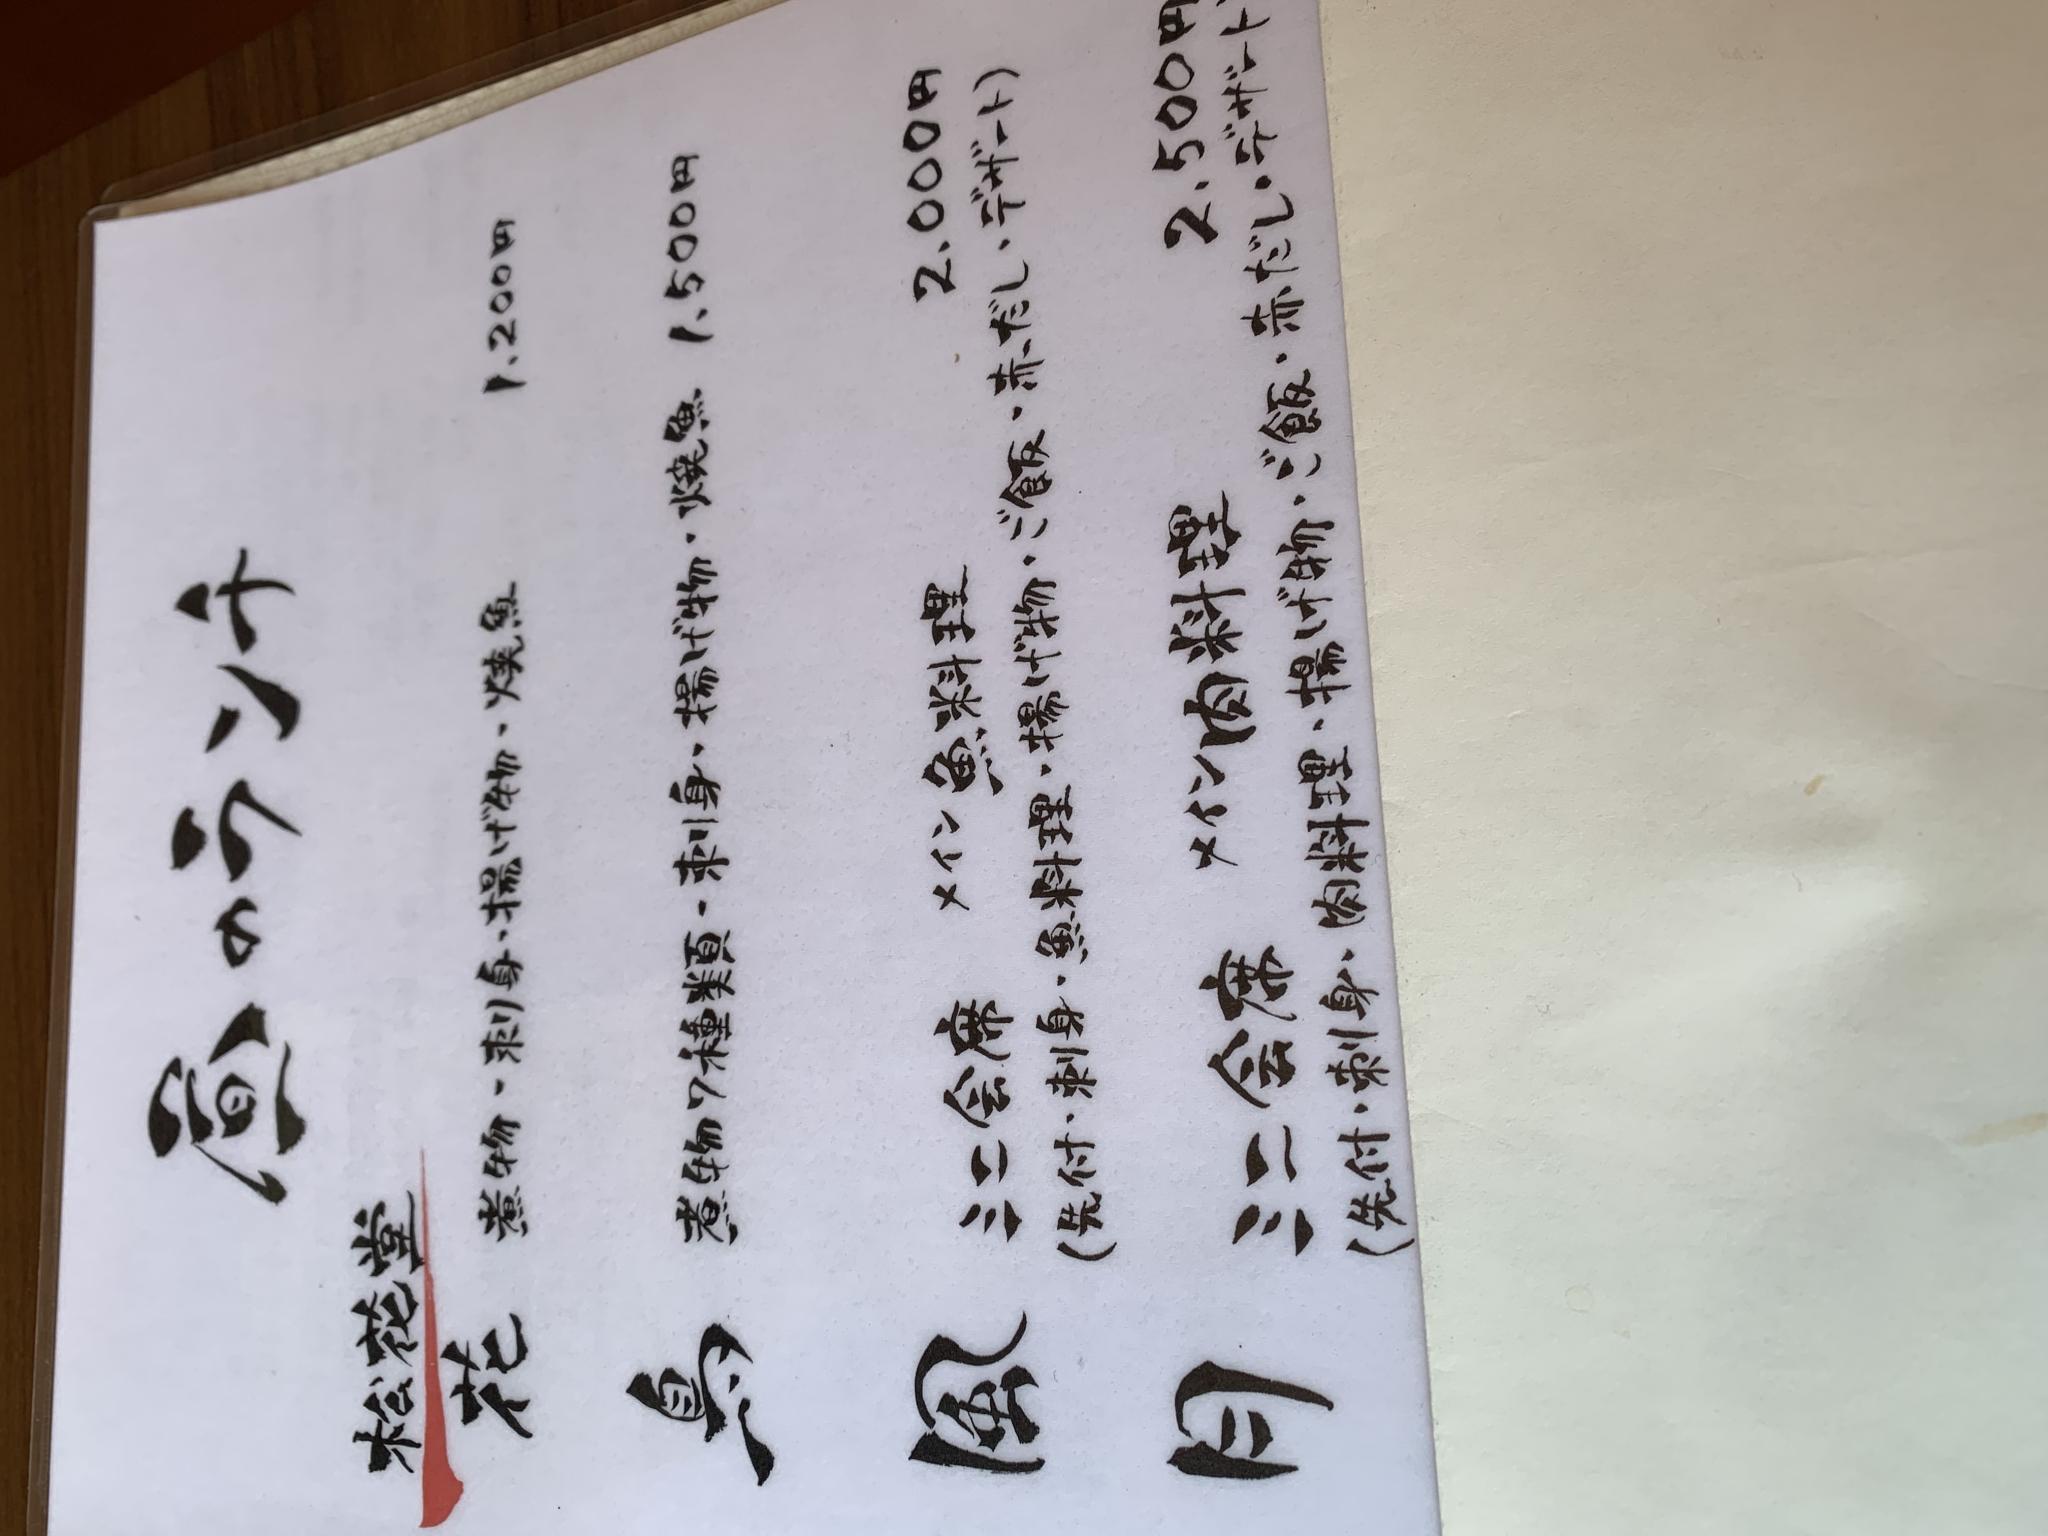 昼のランチ
松花堂
花 煮物・刺身・揚げ物・焼魚 1.200円
鳥 煮物7種類・刺身・揚げ物・焼魚 1.500円
風 ミニ会席 メイン魚料理 2.000円
(先付・刺身・魚料理・揚げ物・ご飯・赤だし・デザート)
月 ミニ会席 メイン肉料理 2.500円
(先付・刺身・肉料理・揚げ物・ご飯・赤だし・デザート